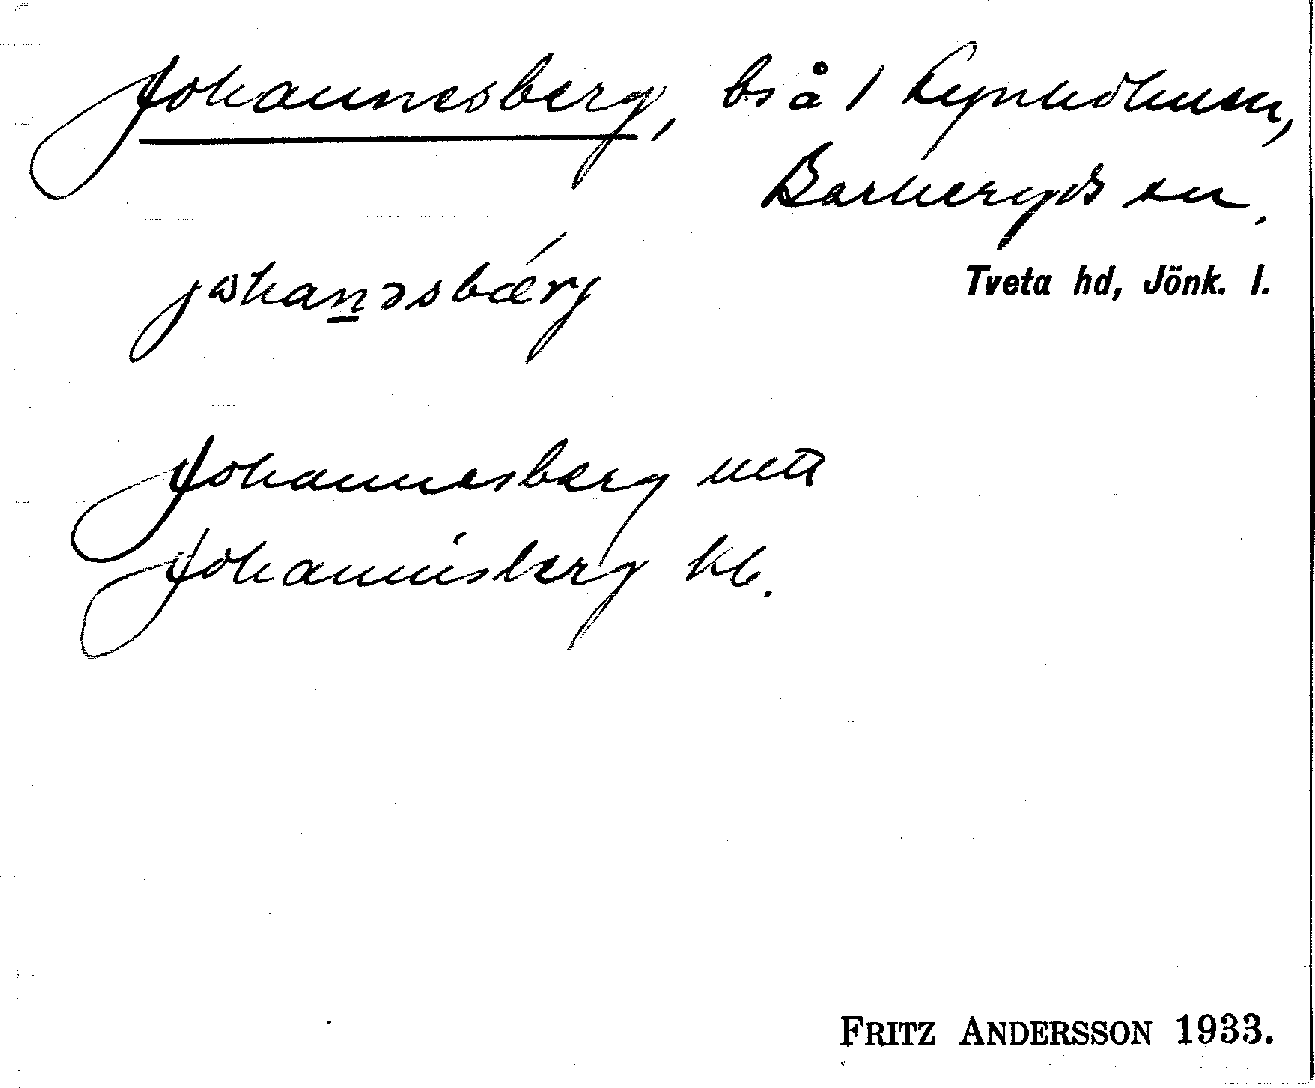 Johannesberg, bs å 1 Lynhohusen,
Barkeryds sn.
johanəsbærj
Tveta hd, Jönk. l.
Johannesberg
Johannisberg kb.
FRITZ ANDERSSON 1933.